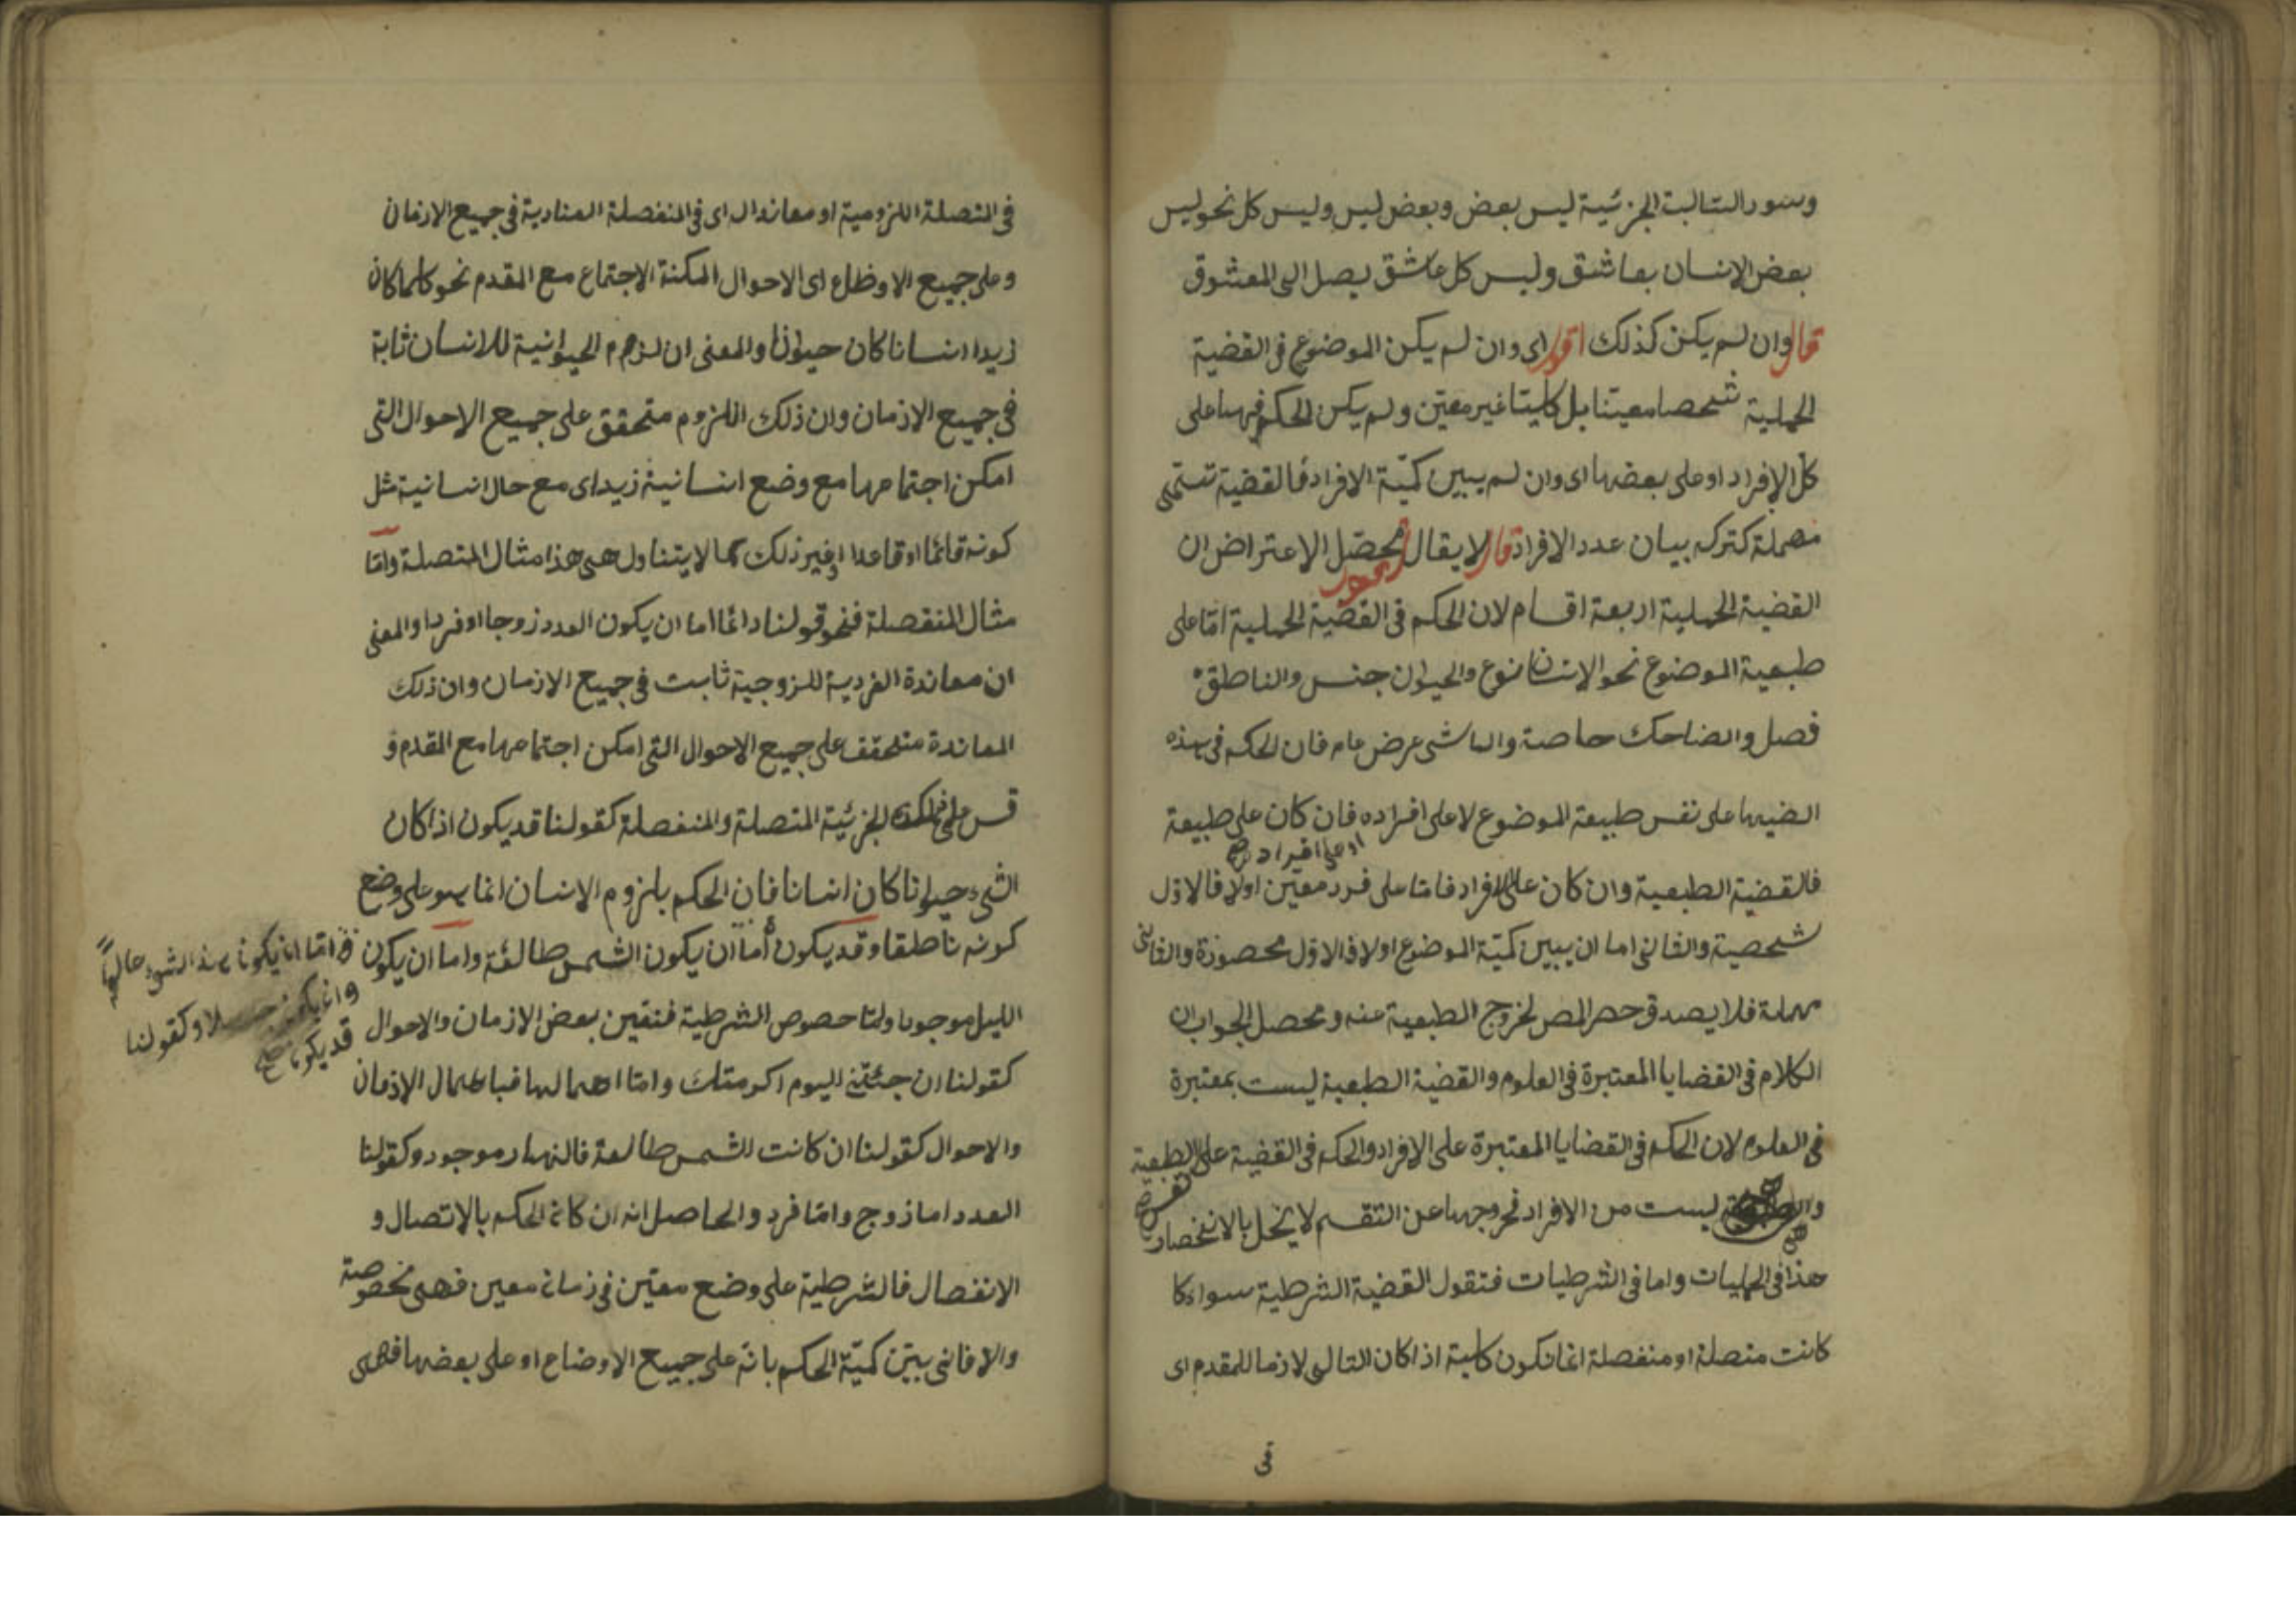 وسور السالبة الجزئية ليس بعض وبعض ليس وليس كل نحو ليس
بعض الانسان بعاشق وليس كل عاشق يصل الى المعشوق
قال وان لم يكن كذلك اقول اى وان لم يكن الموضوع فى القضية
الحملية شخصا معينا بل كليا غير معين ولم يكن الحكم فيها على
كل الافراد او على بعضها اى وان لم يبين كمية الافراد فالقضية تسمى
مهملة كتركه بيان عدد الافراد قال لا يقال اقول محصل الاعتراض ان
القضية الحملية اربعة اقسام لان الحكم فى القضية الحملية اما على
طبعية الموضوع نحو الانسان نوع والحيوان جنس والناطق
فصل والضاحك خاصة والماشى عرض عام فان الحكم فى هذه
على نفس طبيعة الموضوع لا على افراده فان كان على طبيعة
او على افراد صح
فالقضية الطبعية وان كان على الافراد فاما على فرد معين اولا فالاول
شخصية والثانى اما ان يبين كمية الموضوع اولا فالاول محصورة والثانى
مهملة فلا يصدق حصر المص لخروج الطبعية عنه ومحصل الجواب ان
الكلام فى القضايا المعتبرة فى العلوم والقضية الطبعية ليست بمعتبرة
فى العلوم لان الحكم فى القضايا المعتبرة على الافراد والحكم فى القضية على الطبعية
نفس صح
ليست من الافراد فخروجها عن التقسم لا يخل بالانحصار
هذا فى الحمليات واما فى الشرطيات فنقول القضية الشرطية سواء كا
كانت متصلة او منفصلة انما تكون كلية اذا كان التالى لازما للمقدم اى
فى
فى المتصلة اللزومية او معاندا له اى فى المنفصلة العنادية فى جميع الازمان
وعلى جميع الاوضاع اى الاحوال الممكنة الاجتماع مع المقدم نحو كلما كان
زيد انسانا كان حيوانا والمعنى ان لزوم الحيوانية للانسان ثابتة
فى جميع الازمان وان ذلك اللزوم متحقق على جميع الاحوال التى
امكن اجتماعها مع وضع انسانية زيد اى مع حال انسانية مثل
كونه قائما او قاعدا او غير ذلك مما لا يتناول هى هذا مثال المتصلة واما
مثال المنفصلة فنحو قولنا دائما اما ان يكون العدد زوجا او فردا والمعنى
ان معاندة الفردية للزوجية ثابت فى جميع الازمان وان ذلك
المعاندة متحقق على جميع الاحوال التى امكن اجتماعها مع المقدم و
قس على ذلك الجزئية المتصلة والمنفصلة كقولنا قد يكون اذا كان
الشىء حيوانا كان انسانا فان الحكم بلزوم الانسان انما هو على وضع
كونه ناطقا وقد يكون اما ان يكون الشمس طالعة واما ان يكون
اما ان يكون هذا الشىء
كقولنا
قد يكون
الليل موجودا واما خصوص الشرطية فتعين بعض الازمان والاحوال
كقولنا ان جئتنى اليوم اكرمتك واما اهمالها فباهمال الازمان
والاحوال كقولنا ان كانت الشمس طالعة فالنهار موجود وكقولنا
العدد اما زوج واما فرد والحاصل انه ان كان الحكم بالاتصال و
الانفصال فالشرطية على وضع معين فى زمان معين فهى مخصوصة
والا فان بين كمية الحكم بانه على جميع الاوضاع او على بعضها فهى